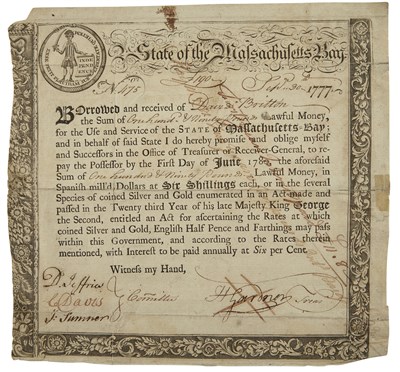 State of the Massachusetts Bay.
No. 475 £190 Sept. 30th 1777
Borrowed and received of Britton
the Sum of One hund. & Ninety Lawful Money,
for the Use and Service of the STATE of Massachusetts-Bay;
and in behalf of said State I do hereby promise and oblige myself
and Successors in the Office of Treasurer or Receiver-General, to re-
pay the Possessor by the First Day of June 178 the aforesaid
Sum of One hundred & Ninety Pounds Lawful Money, in
Spanish mill'd Dollars at Six Shillings each, or in the several
Species of coined Silver and Gold enumerated in an Act made and
passed in the Twenty third Year of his late Majesty King George
the Second, entitled an Act for ascertaining the Rates at which
coined Silver and Gold, English Half Pence and Farthings may pass
within this Government, and according to the Rates therein
mentioned, with Interest to be paid annually at Six per Cent.
Witness my Hand,
D. Jeffries
C Davis Committee H Gardner Treas
J. Sumner